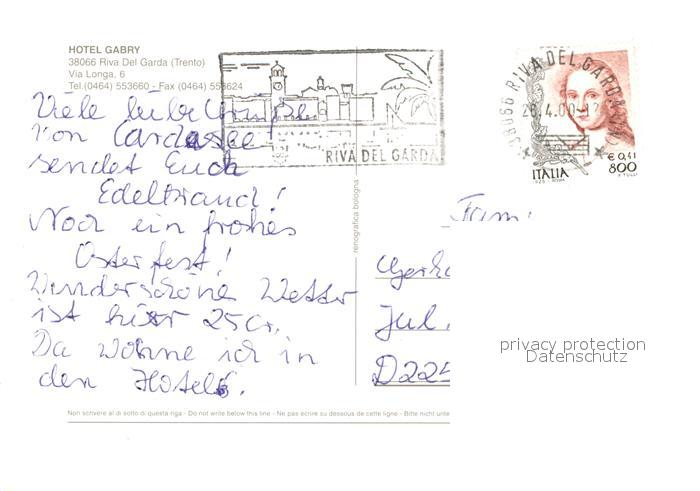 HOTEL GABRY
38066 Riva Del Garda (Trento)
Via Longa, 6
Tel.(0464) 553660 - Fax (0464) 553624
Viele liebe Grüße
von Gardasee
sendet Euch
Edeltraud!
Noch ein frohes
Osterfest!
Wunderschöne Wetter
ist hier 25 Gr.
Da wohne ich in
den Hotel.
RIVA DEL GARDA
38066 RIVA DEL GARDA
26.4.00
€ 0,41
800
ITALIA
renografica bologna
Fam.
Gerh
Jul.
D225
privacy protection
Datenschutz
Non scrivere al di sotto di questa riga - Do not write below this line - Ne pas écrire su dessous de cette ligne - Bitte nicht unte